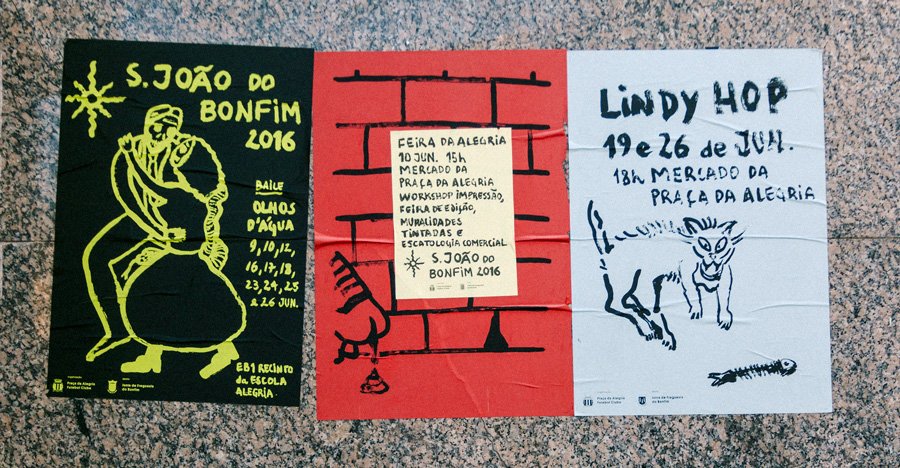 S. JOÃO DO
BONFIM
2016
BAILE
OLHOS
D'ÁGUA
9, 10, 12,
16, 17, 18,
23, 24, 25
e 26 JUN.
EB1 RECINTO
da ESCOLA
ALEGRIA.
Praça da Alegria
Futebol Clube
Junta de Freguesia
do Bonfim
FEIRA DA ALEGRIA
10 JUN. 15h
MERCADO DA
PRAÇA DA ALEGRIA
WORKSHOP IMPRESSÃO,
FEIRA DE EDIÇÃO,
MURALIDADES
TINTADAS E
ESCATOLOGIA COMERCIAL
S. JOÃO DO
BONFIM 2016
LINDY HOP
19 e 26 de JUN.
18h MERCADO DA
PRAÇA DA ALEGRIA
Praça da Alegria
Futebol Clube
Junta de Freguesia
do Bonfim